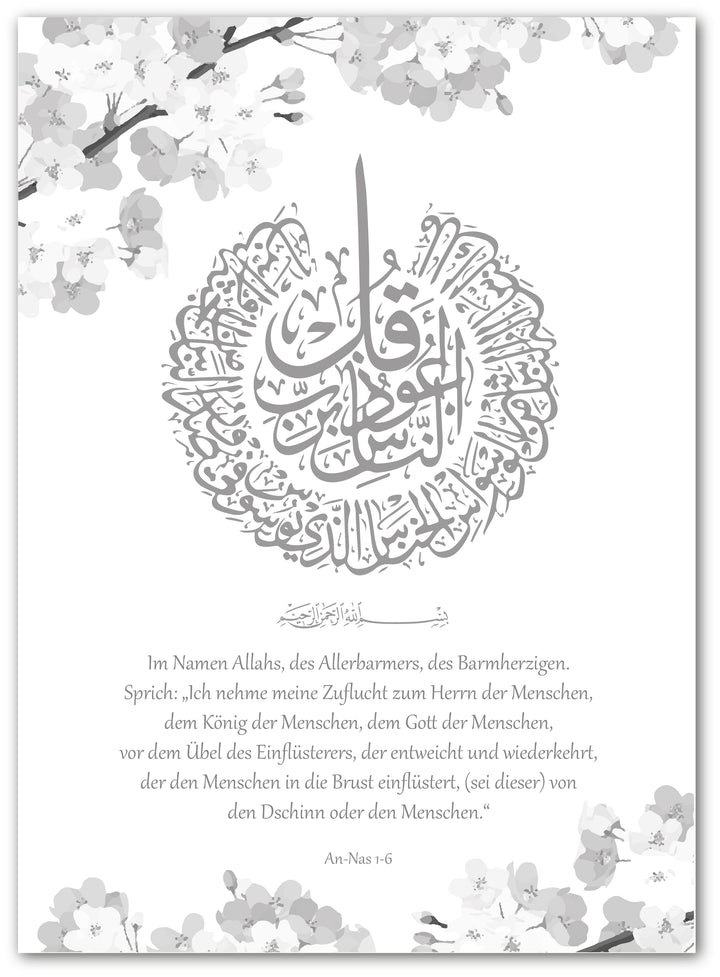 قُلْ
أَعُوذُ بِرَبِّ
النَّاسِ
بِسْمِ اللهِ الرَّحْمٰنِ الرَّحِيْمِ
Im Namen Allahs, des Allerbarmers, des Barmherzigen.
Sprich: „Ich nehme meine Zuflucht zum Herrn der Menschen,
dem König der Menschen, dem Gott der Menschen,
vor dem Übel des Einflüsterers, der entweicht und wiederkehrt,
der den Menschen in die Brust einflüstert, (sei dieser) von
den Dschinn oder den Menschen.“
An-Nas 1-6